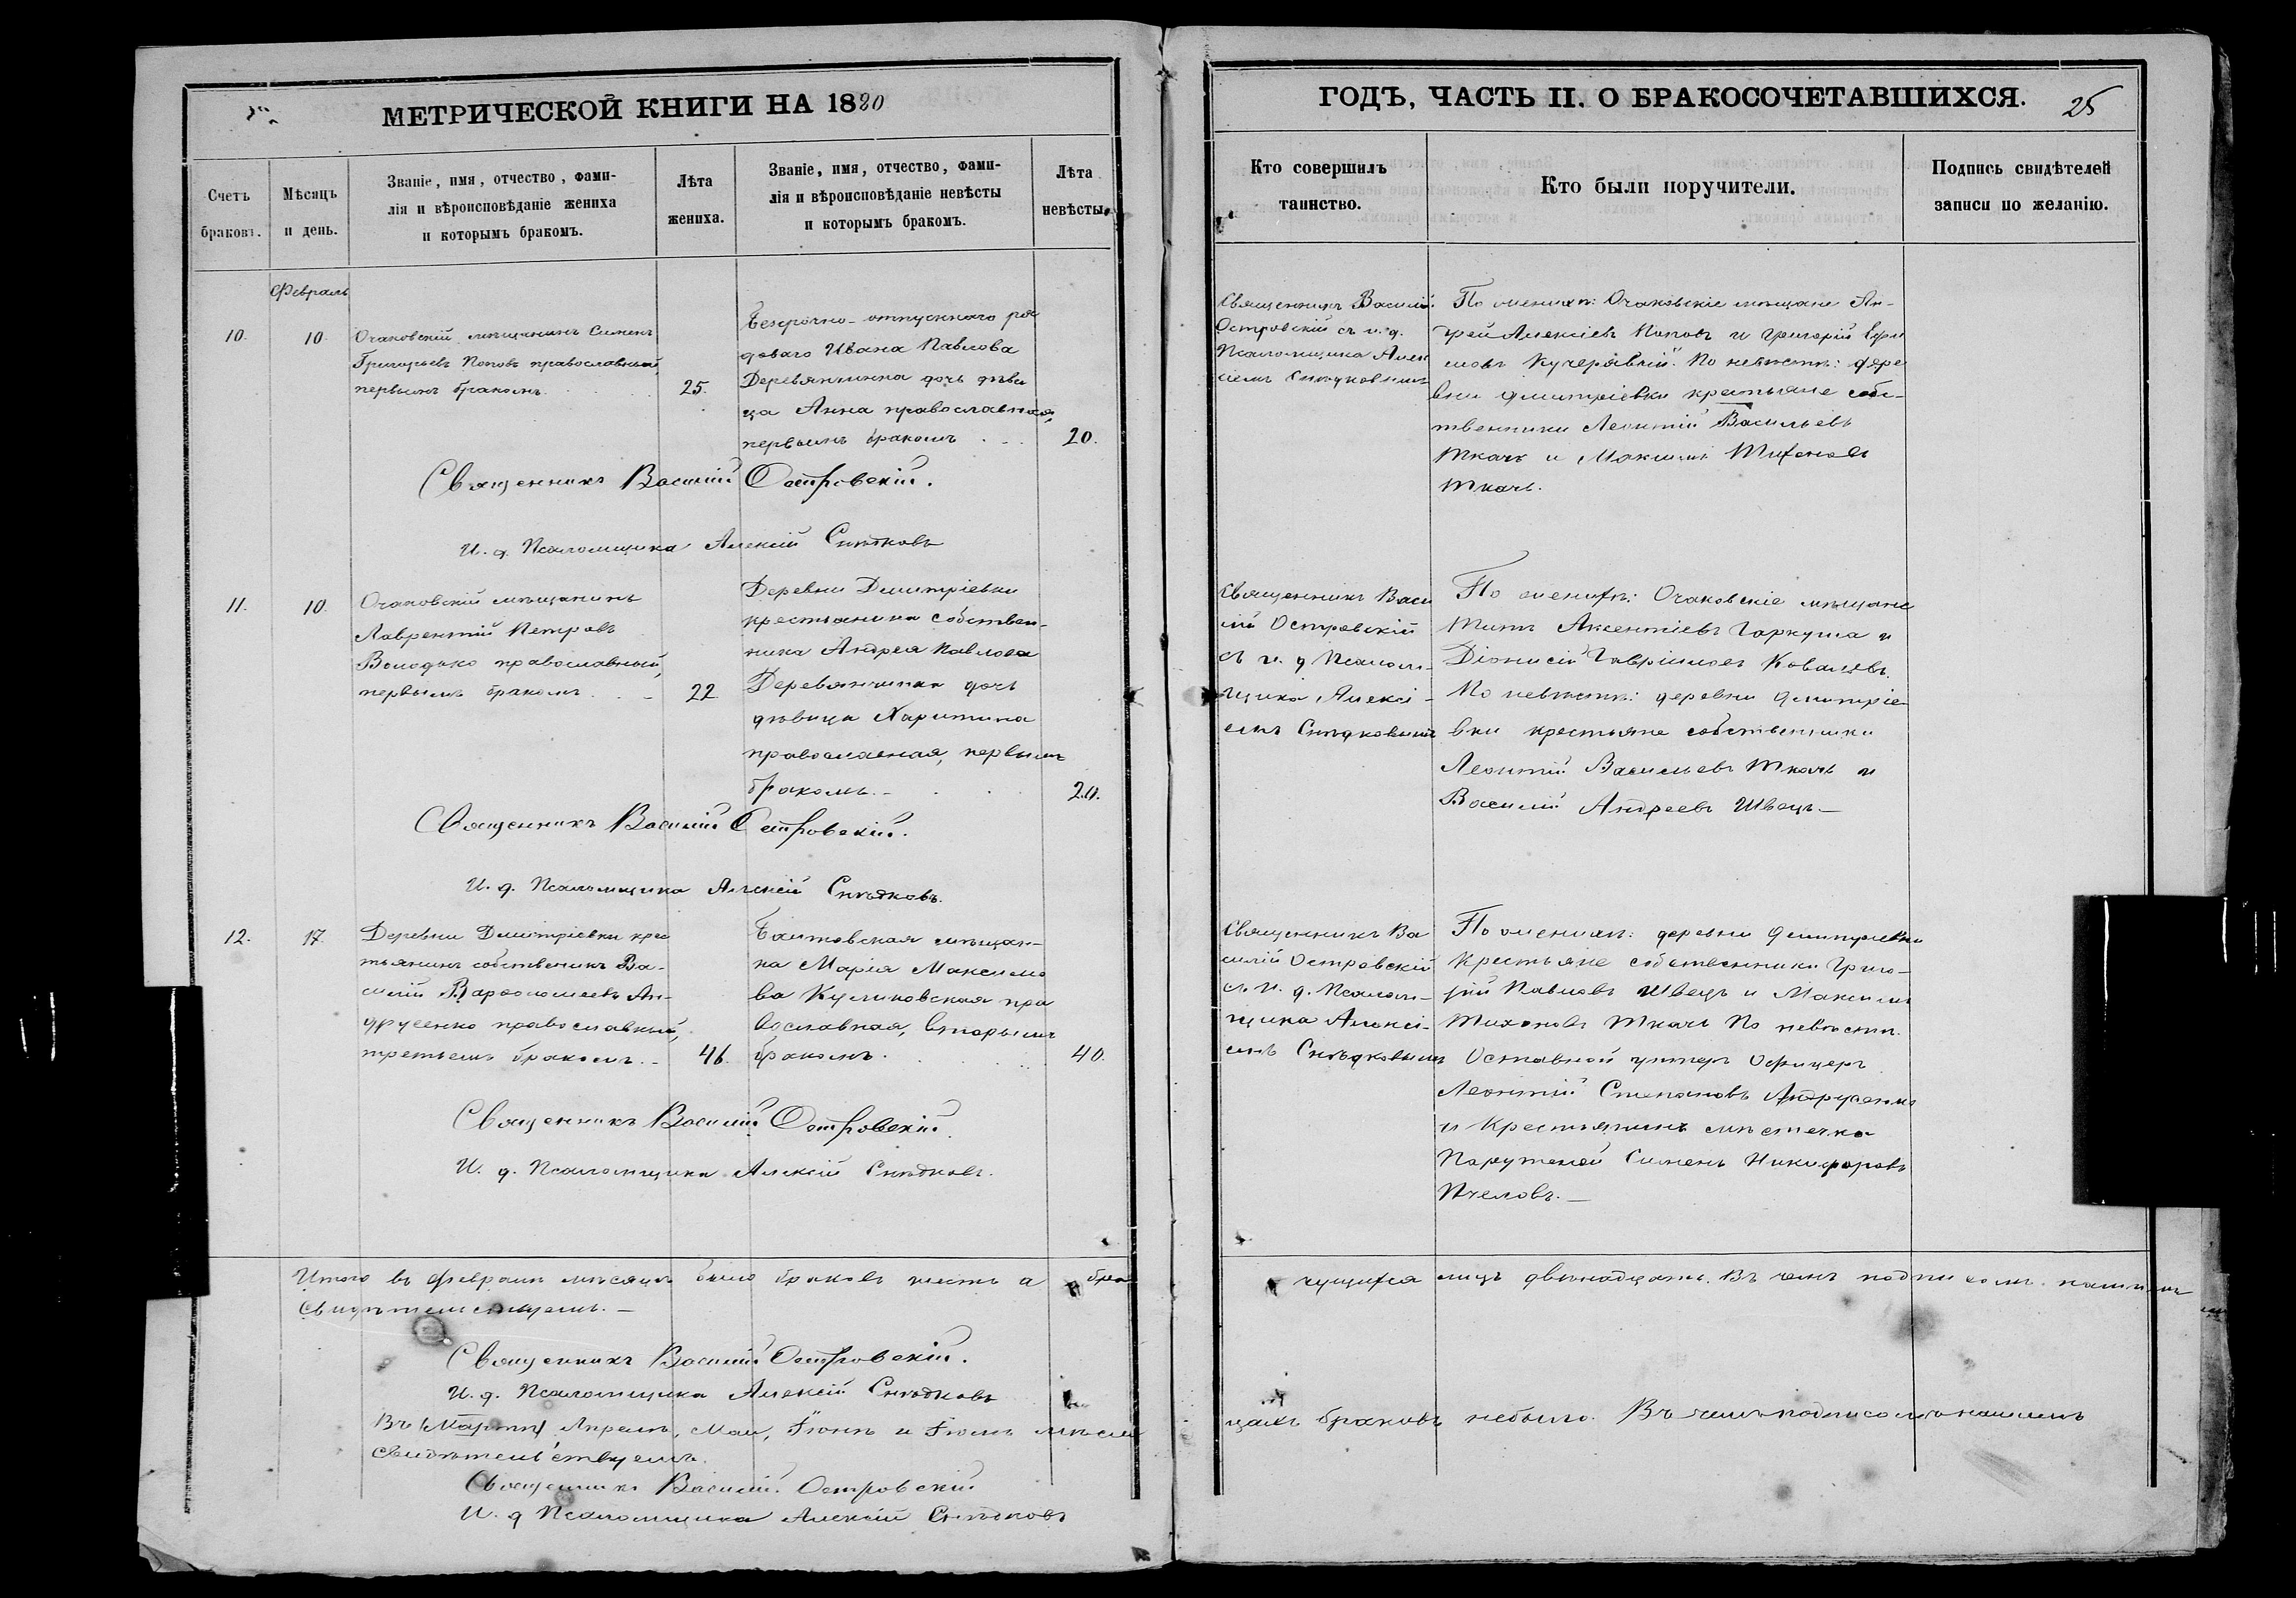 МЕТРИЧЕСКОЙ КНИГИ НА 1880
ГОДЪ, ЧАСТЬ II. О БРАКОСОЧЕТАВШИХСЯ. 25
Счетъ
браковъ.
Мѣсяцъ
и день.
Званіе, имя, отчество, фами-
лія и вѣроисповѣданіе жениха
и которымъ бракомъ.
Лѣта
жениха.
Званіе, имя, отчество, фами-
лія и вѣроисповѣданіе невѣсты
и которымъ бракомъ.
Лѣта
невѣсты.
Кто совершилъ
таинство.
Кто были поручители.
Подпись свидѣтелей
записи по желанію.
Февраль
10.
10
Очаковскій мѣщанинъ Сименъ
Григорьевъ Поповъ православный,
первымъ бракомъ.
25.
Безсрочно-отпускнаго ря
доваго Ивана Павлова
Деревянчинка дочь дѣви
ца Анна православная,
первымъ бракомъ
20.
Священникъ Василій
Островскій съ и. д.
Псаломщика Алек
сіемъ
По женихѣ: Очаковскіе мѣщане Ан-
дрей Алексіевъ Поповъ и Григорій
Кучерявый. По невѣстѣ: дере
вни Димитріевки крестьяне соб-
твенники Леонтій Васильевъ
Ткачъ и Максимъ Тихоновъ
Ткачъ.
Священникъ Василій Островскій.
И. д. Псаломщика Алексій Снѣдковъ
11.
10.
Очаковскій мѣщанинъ
Лаврентій Петровъ
Володько православный,
первымъ бракомъ
22
Деревни Димитріевки
крестьянина собствен-
ника Андрея Павлова
Деревянчинка дочь
дѣвица Харитина
православная, первымъ
бракомъ.
20.
Священникъ Васи
лій Островскій
съ и. д Псалом-
щика Алексі-
емъ Снѣдковымъ
По женихѣ: Очаковскіе мѣщане
Титъ Аксентіевъ Гаркуша и
Діонисій Гавріиловъ Ковалевъ.
По невѣстѣ: деревни Димитріе-
вки крестьяне собственники
Леонтій Васильевъ Ткачъ и
Василій Андреевъ Швецъ.—
Священникъ Василій Островскій.
И. д. Псаломщика Алексій Снѣдковъ.
12.
17.
Деревни Димитріевки крес
тьянинъ собственикъ Ва-
силій Варѳоломеевъ Ан-
друсенко православный,
третьемъ бракомъ.
46.
Бахтовская мѣщан-
ка Марія Максимо
ва Куликовская пра
вославная, вторымъ
бракомъ.
40.
Священникъ Ва
силій Островскій
съ и. д. Псалом-
щика Алексі-
емъ Снѣдковымъ
По женихѣ: деревни Димитріевки
Крестьяне собственники Григо-
рій Павловъ Швецъ и Максимъ
Тихоновъ Ткачъ По невѣстѣ.
Оставной унтеръ Офицеръ
Леонтій Степановъ Андрусенко
и Крестьянинъ мѣстечка
Сименъ Никифоровъ
Пчеловъ.—
Священникъ Василій Островскій.
И. д. Псаломщика Алексій Снѣдковъ.
Итого въ Февралѣ мѣсяцѣ было браковъ шесть а бра
чущихся лицъ двѣнадцать. Въ чемъ подписомъ нашимъ
свидѣтельствуемъ.—
Священникъ Василій Островскій.
И. д. Псаломщика Алексій Снѣдковъ
Въ Мартѣ, Апрелѣ, Маи, Іюнѣ и Іюлѣ мѣся
цахъ браковъ небыло. Въ чемъ подписомъ нашимъ
свидѣтельствуемъ.
Священникъ Василій Островскій
И. д Псаломщика Алексій Снѣдковъ